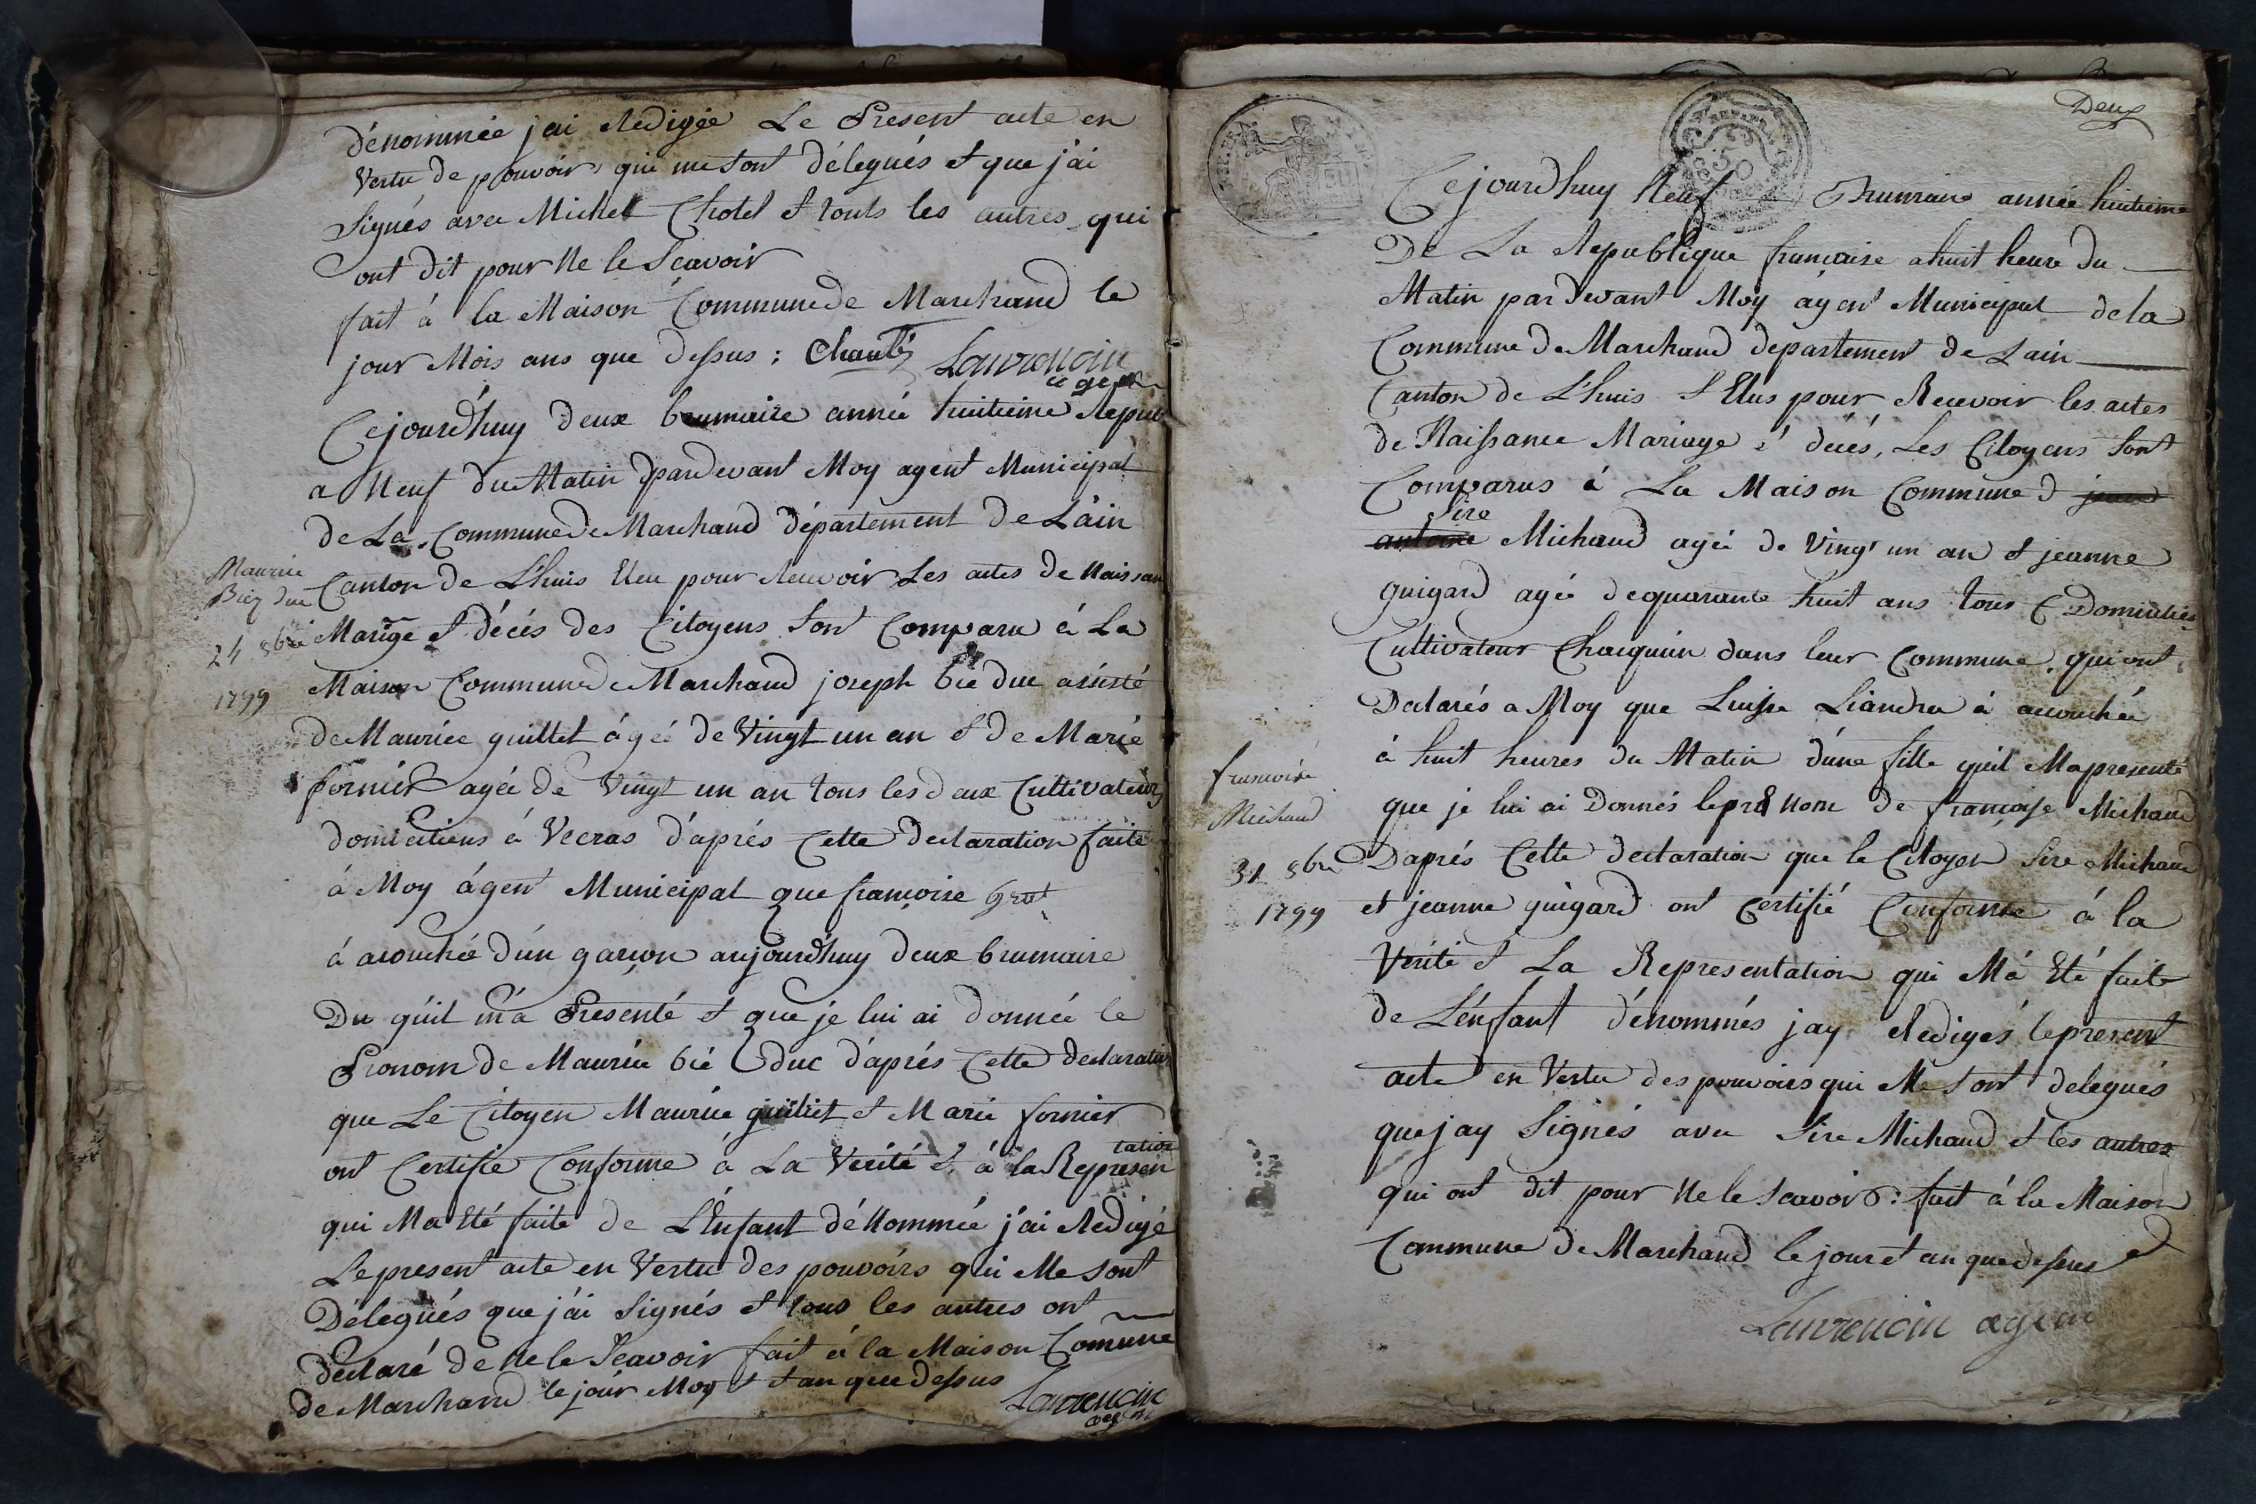 dénommée j'ai Redigée Le Present acte en
Vertu de pouvoirs qui me sont délegués et que j'ai
Signés avec Michel Chotel et touts les autres qui
ont dit pour Ne le Scavoir
fait à la Maison Commune de Marchand le
jour Mois ans que dessus : Laurencin
agent
Cejourd'huy deux brumaire année huitieme Repub
a Neuf du Matin pardevant Moy agent Municipal
de La Commune de Marchand département de L'ain
Maurice
Canton de L'huis Eleu pour Recevoir Les actes de Naissan
Biey duc
24 8bre
Marige et décés des Citoyens sont Comparu à La
1799
Maison Commune de Marchand joseph bié duc assisté
de Maurice guillet ágé de Vingt un an et de Marie
fornier agée de Vingt un an tous les deux Cultivateurs
domiciliens à Vecras d'aprés Cette declaration faite
à Moy ágent Municipal que françoise
à acouchée d'un garçon aujourdhuy deux brumaire
Du qu'il m'a Presenté et que je lui ai donnée le
Pronom de Maurice bié duc d'aprés Cette declaration
que Le Citoyen Maurice guillet et Marie fornier
ont Certifie Conforme à La Verité et à la Represen
tation
qui Ma Eté faite de L'Enfant déNommée j'ai Redigé
Le present acte en Vertu des pouvoirs qui Me sont
Délegués que j'ai Signés et tous les autres ont
déclaré de Ne le Scavoir fait à la Maison Comune
de Marchand le jour Moy et an que dessus Laurencin
agent
Deux
Cejourdhuy Neuf Brumaire année huitieme
De La Republique françaire a huit heure du
Matin pardevant Moy agent Municipal de la
Commune de Marchand departement de Lain
Canton de L'huis et Elus pour Recevoir les actes
de Naissance Mariage é décés, Les Citoyens sont
Comparus à La Maison Commune d
Sire
antoine Michaud agée de Vingt un an et jeanne
guigard agée de quarante huit ans tous Domiciliés
Cultivateur Chacquun dans leur Commune qui ont
Declarés a Moy que Luisse Liandra à acouchée
à huit heures du Matin d'une fille qu'il Mapresenté
francoise
Michaud
que je lui ai Donnés le pre Nom de françoise Michaud
31 8bre
Daprés Cette declaration que le Citoyen Sire Michaud
1799
et jeanne guigard ont Certifié Conforme à la
Verité et La Representation qui Má Eté faite
de L'énfant dénommés jay Redigés le present
acte en Vertu des pouvoirs qui Me sont delegués
que jay Signés avec Sire Michaud et les autres
qui ont dit pour Ne le scavoir : fait à la Maison
Commune de Marchand le jour et an que dessus
Laurencin agent